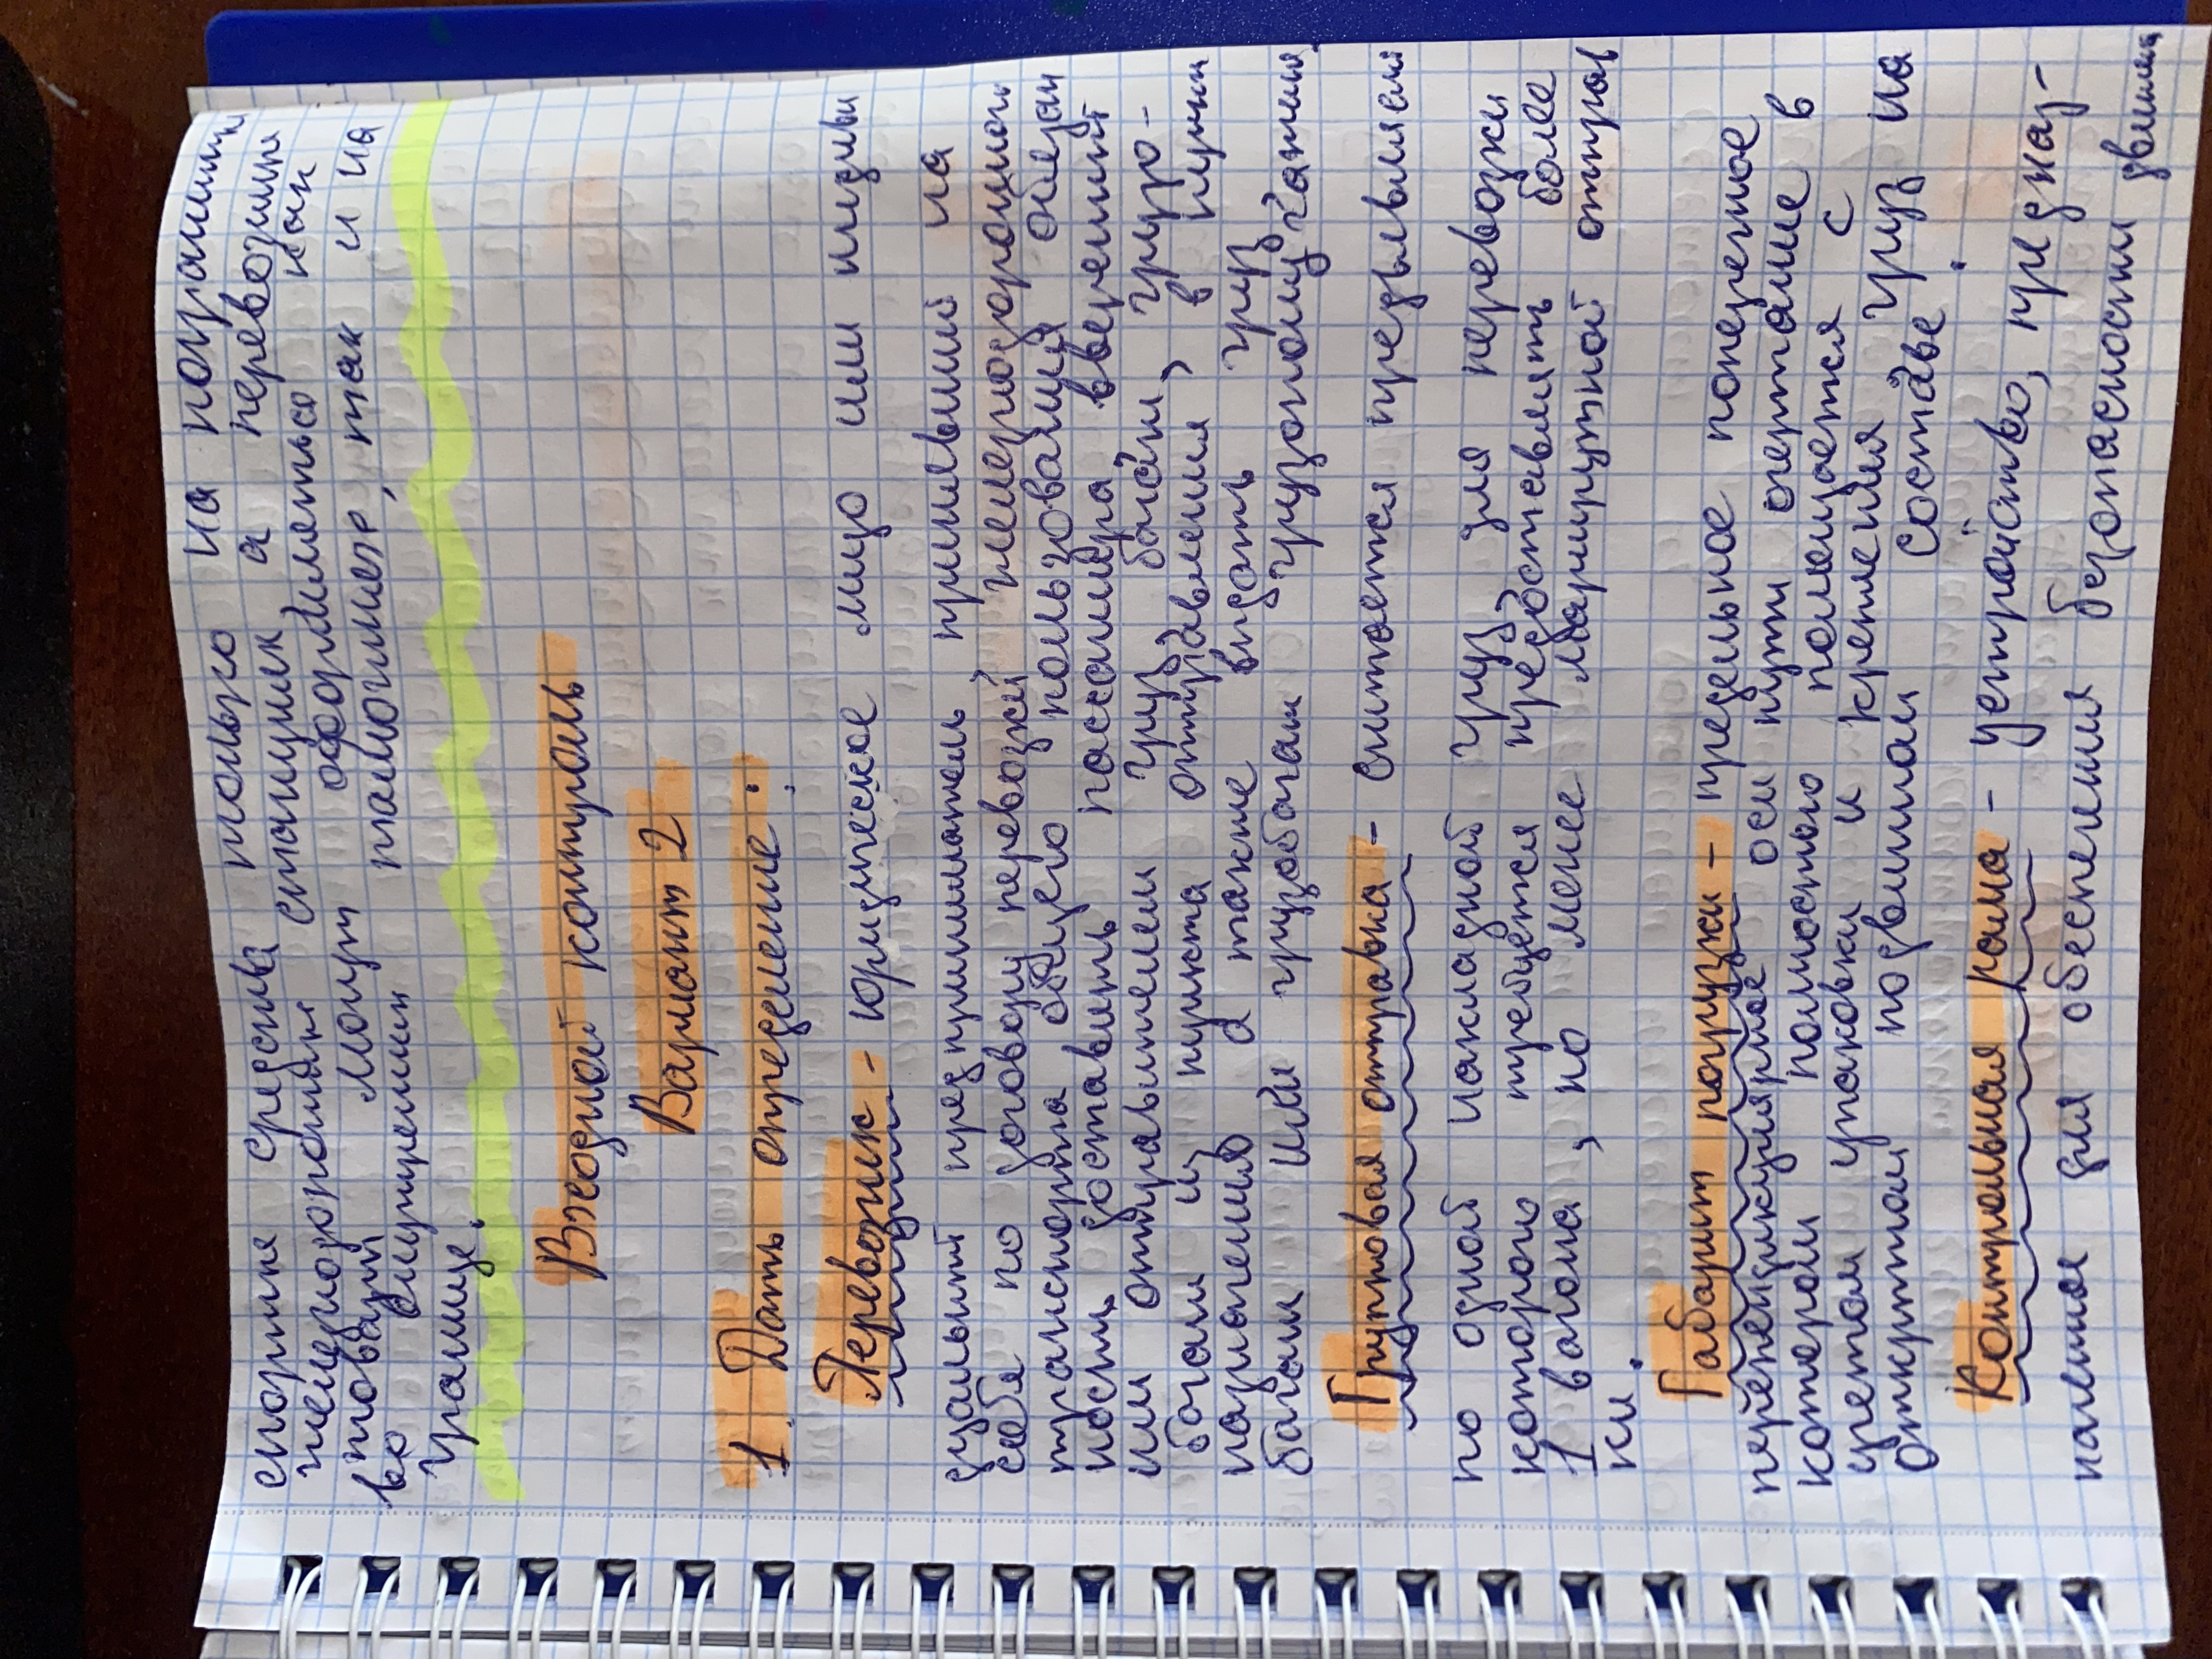 спорные средства только на пограничн
железнодорожных станциях а перевозки
товаров могут оформляться как
во внутренних таможнях, так и на
границе.
Входной контроль
Вариант 2
1. Дать определение:
Перевозчик - юридическое лицо или индиви
дуальный предприниматель принявший на
себя по договору перевозки железнодорожного
транспорта общего пользования обязан
ность доставить пассажира вверенный
им отправителем груз, багаж, грузо-
багаж из пункта отправления в пункт
назначения а также выдать груз
багаж или грузобагаж грузополучателю
Групповая отправка - считается предъявляем
по одной накладной груз для перевозки
которого требуется предоставить более
1 вагона, но менее маршрутной отправ
ки.
Габарит погрузки - предельное поперечное
перпендикулярное оси пути очертание в
котором полностью помещается с
учетом упаковки и крепления груз на
открытом подвижном составе.
Контрольная рама - устройство, предназ-
наченное для обеспечения безопасности движен